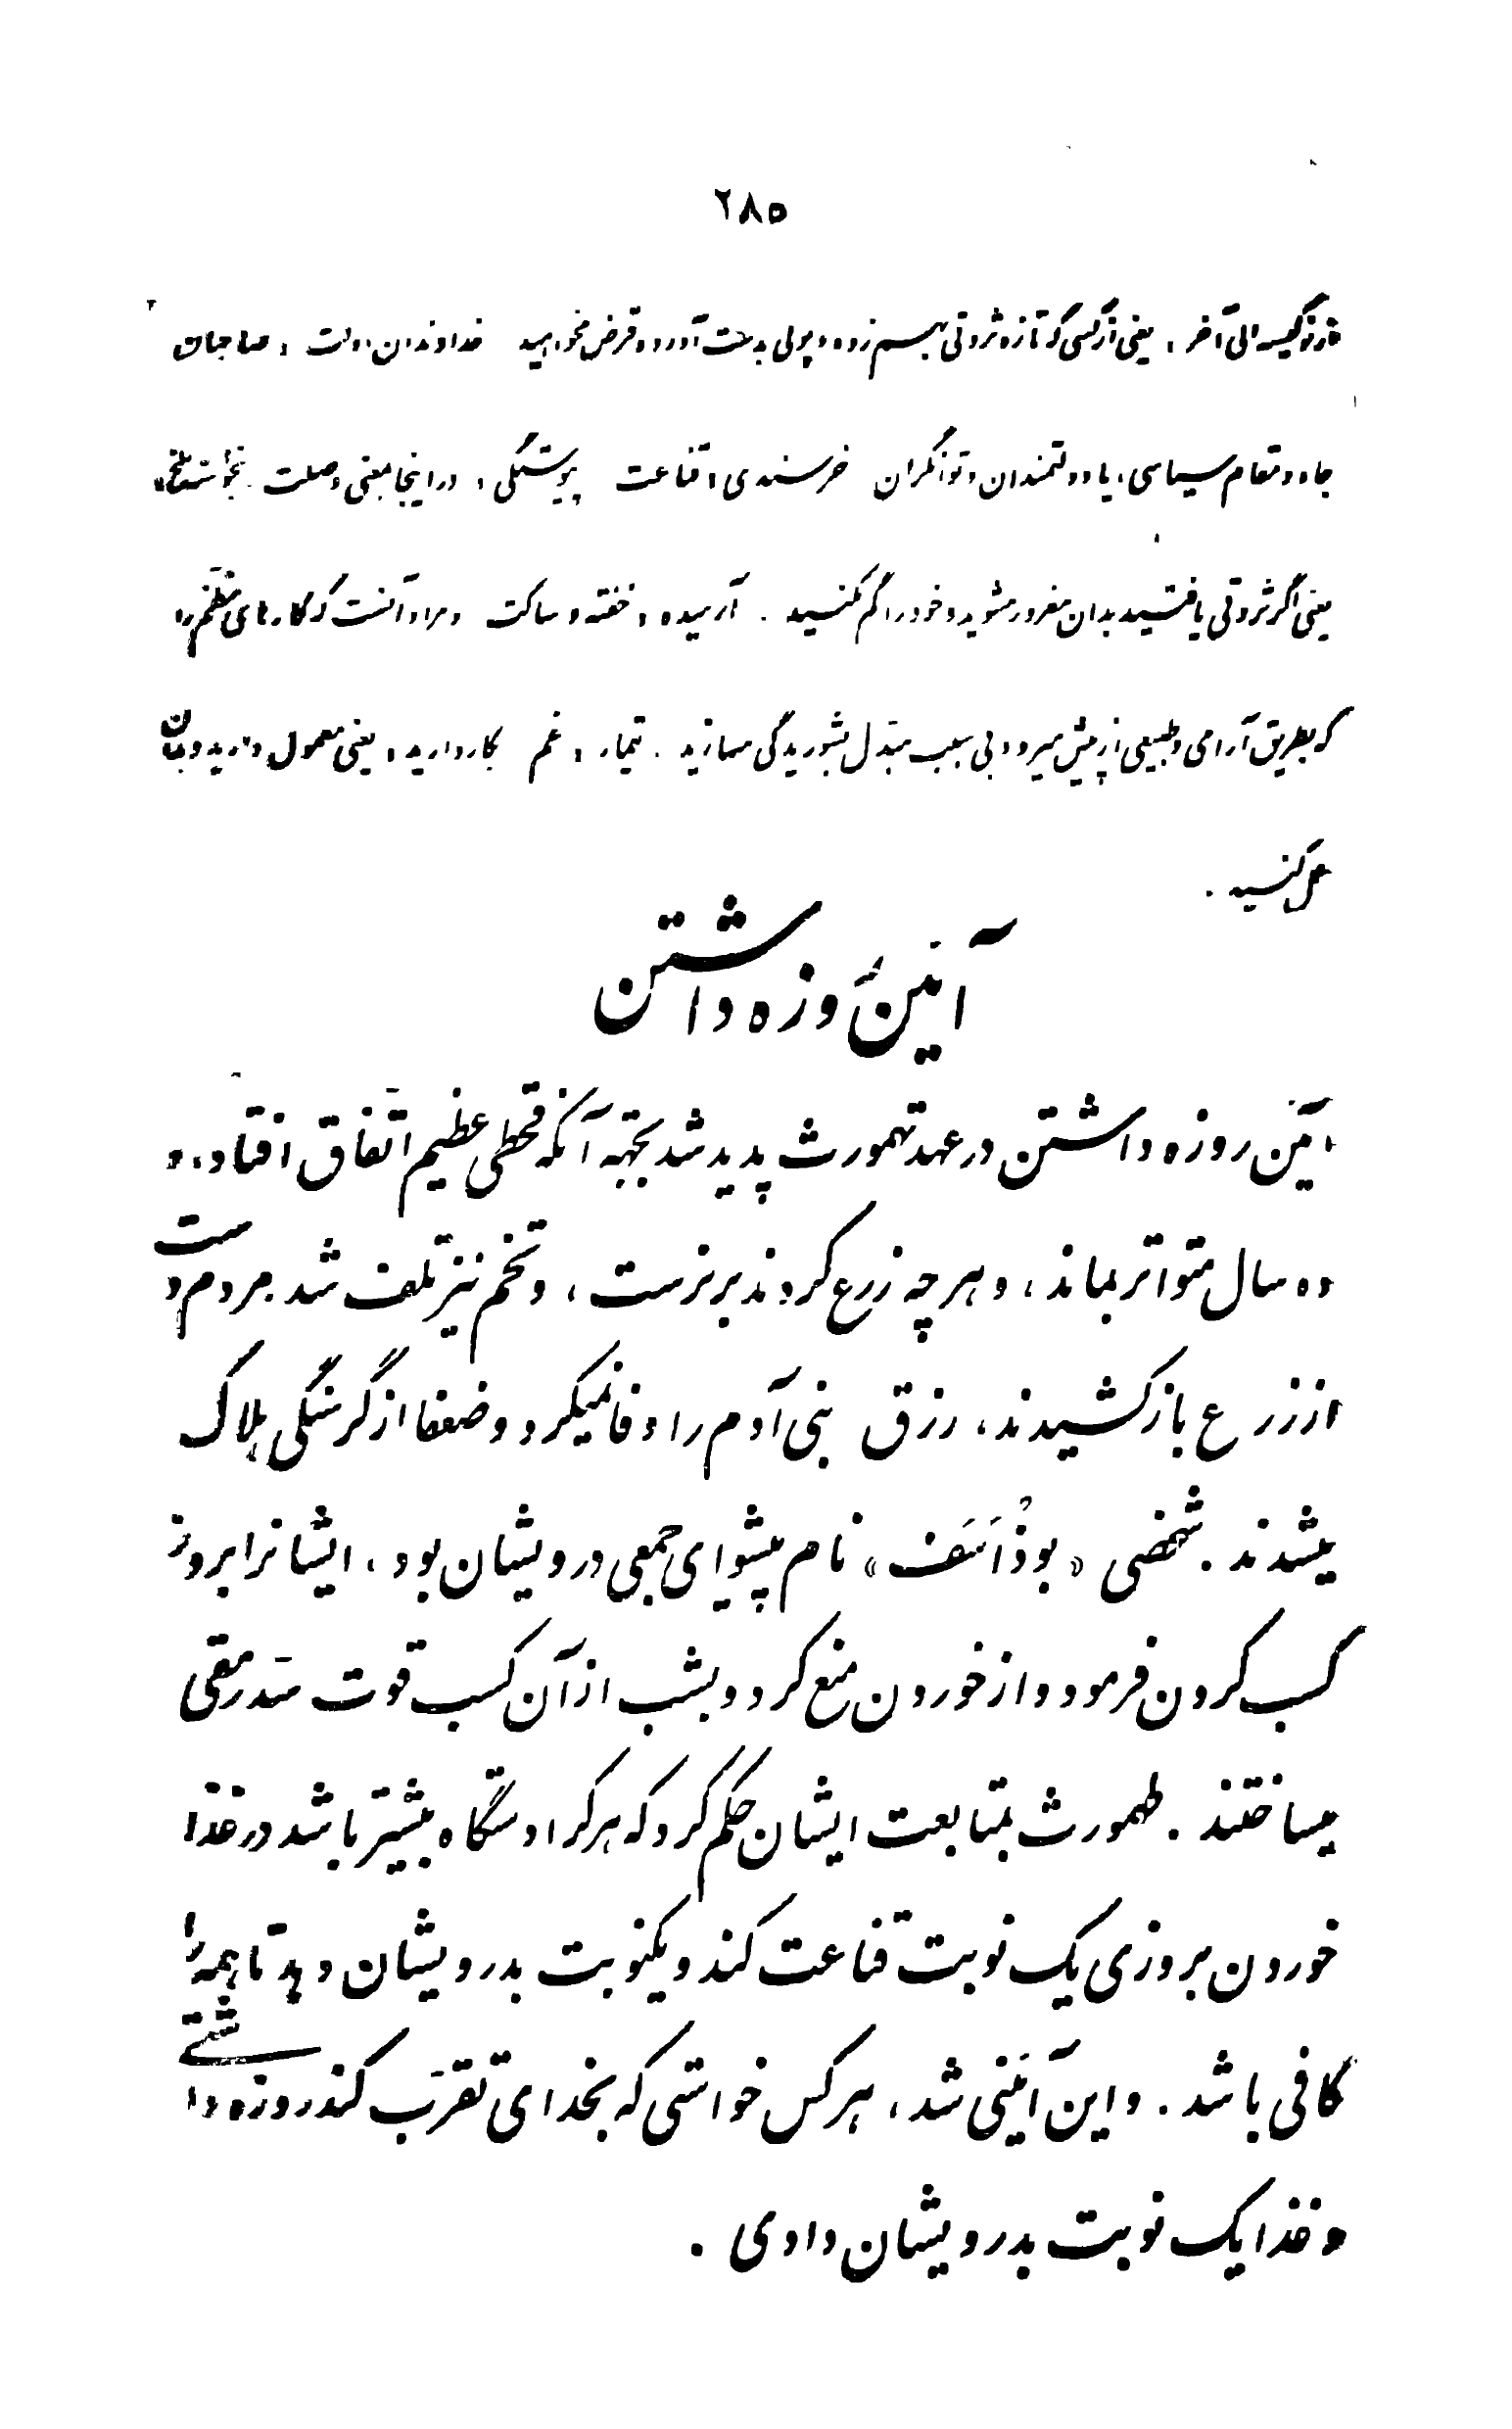 ۲۸۵
از نوکیسه الی آخر ، یعنی از کسی که تازه ثروتی بهم زده و پولی بدست آورده قرض نخواهید خداوندان دولت ، صاحبان
جاه و مقام سیاسی ، یا دولتمندان و توانگران خرسندی ، قناعت پیوستگی ، در اینجا بمعنی وصلت
یعنی اگر ثروتی یافتید بدان مغرور مشوید و خود را گم مکنید . آرمیده ، خفته و ساکت و مراد آنست که کارهای منظم را
که بطریق آرامی و طبیعی از پیش میرود بی سبب مبتدل بشوریدگی مسازید . تیمار ، غم بکار دارید ، یعنی معمول دارید و بدان
عمل کنید .
آئین روزه داشتن
آئین روزه داشتن در عهد تهمورث پدید شد بجهة آنکه قحطی عظیم اتفاق افتاد ، و
ده سال متواتر بماند ، و هر چه زرع کردند بر نرست ، و تخم نیز تلف شد مردم دست
از زرع باز کشیدند ، رزق بنی آدم را وفا نمیکرد و ضعفا از گرسنگی هلاک
میشدند . شخصی «بوذاسَف» نام پیشوای جمعی درویشان بود ، ایشانرا بروز
کسب کردن فرمود و از خوردن منع کرد و بشب از آن کسب قوت سدرمقی
میساختند . طهمورث بمتابعت ایشان حکم کرد که هر کرا دستگاه بیشتر باشد در غذا
خوردن بروزی یک نوبت قناعت کند و یکنوبت بدرویشان دهد تا همه را
کافی باشد . و این آئینی شد ، هر کس خواستی که بخدای تقرّب کند روزه داشتی
و غذا یک نوبت بدرویشان دادی .